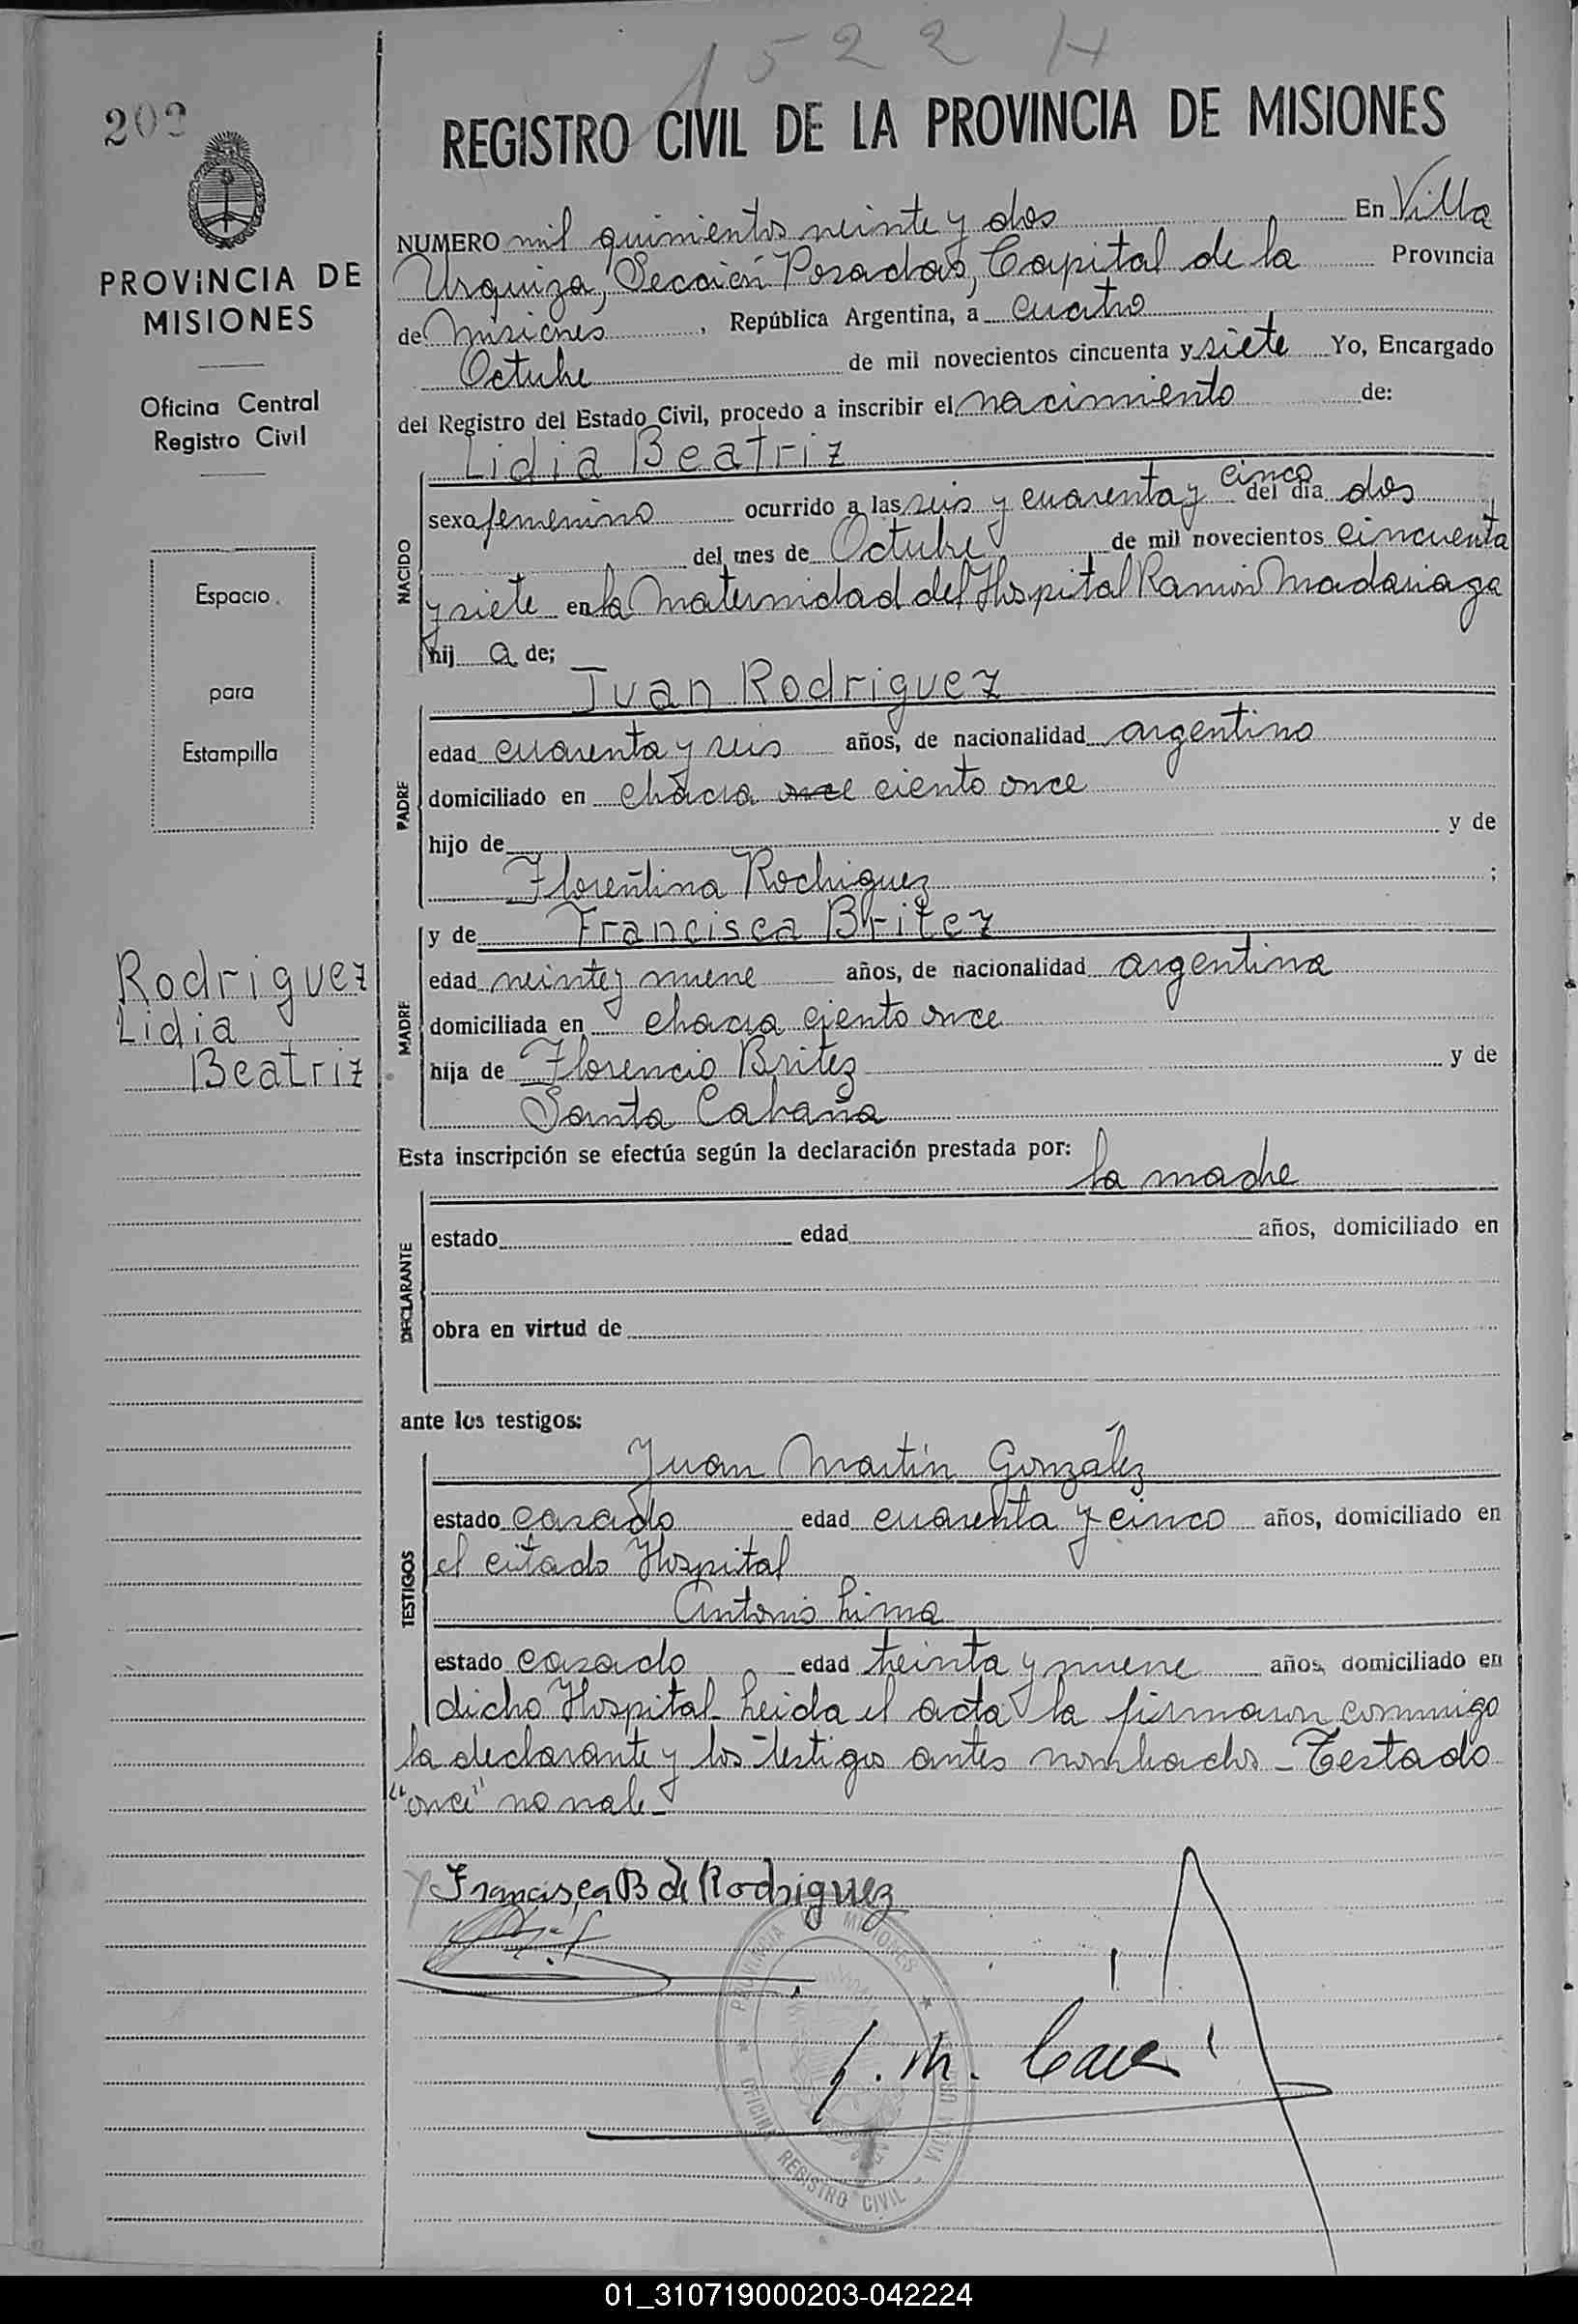 1522 H
202
REGISTRO CIVIL DE LA PROVINCIA DE MISIONES
PROVINCIA DE
MISIONES
Oficina Central
Registro Civil
Espacio
para
Estampilla
Rodriguez
Lidia
Beatriz
NUMERO mil quinientos veinte y dos En Villa
Urquiza, Sección Posadas, Capital de la Provincia
de Misiones, República Argentina, a cuatro
Octubre de mil novecientos cincuenta y siete Yo, Encargado
del Registro del Estado Civil, procedo a inscribir el nacimiento de:
Lidia Beatriz
NACIDO
sexo femenino ocurrido a las seis y cuarenta y cinco del día dos
del mes de Octubre de mil novecientos cincuenta
y siete en la Maternidad del Hospital Ramón Madariaga
hij a de;
Juan Rodriguez
PADRE
edad cuarenta y seis años, de nacionalidad argentino
domiciliado en chacra once ciento once
hijo de y de
Florentina Rodriguez ;
y de Francisca Britez
MADRE
edad veinte y nueve años, de nacionalidad argentina
domiciliada en chacra ciento once
hija de Florencio Britez y de
Santa Cabaña
Esta inscripción se efectúa según la declaración prestada por:
la madre
DECLARANTE
estado edad años, domiciliado en
obra en virtud de
ante los testigos:
Juan Martín González
TESTIGOS
estado casado edad cuarenta y cinco años, domiciliado en
el citado Hospital
Antonio Lima
estado casado edad treinta y nueve años, domiciliado en
dicho Hospital- Leida el acta la firmaron conmigo
la declarante y los testigos antes nombrados - Testado
"once" no vale-
Francisca B de Rodriguez
PROVINCIA DE MISIONES
OFICINA REGISTRO CIVIL
01_310719000203-042224